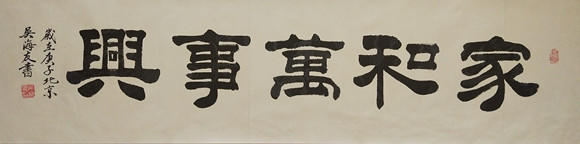 家和萬事興
歲在庚子北京
吴海友書